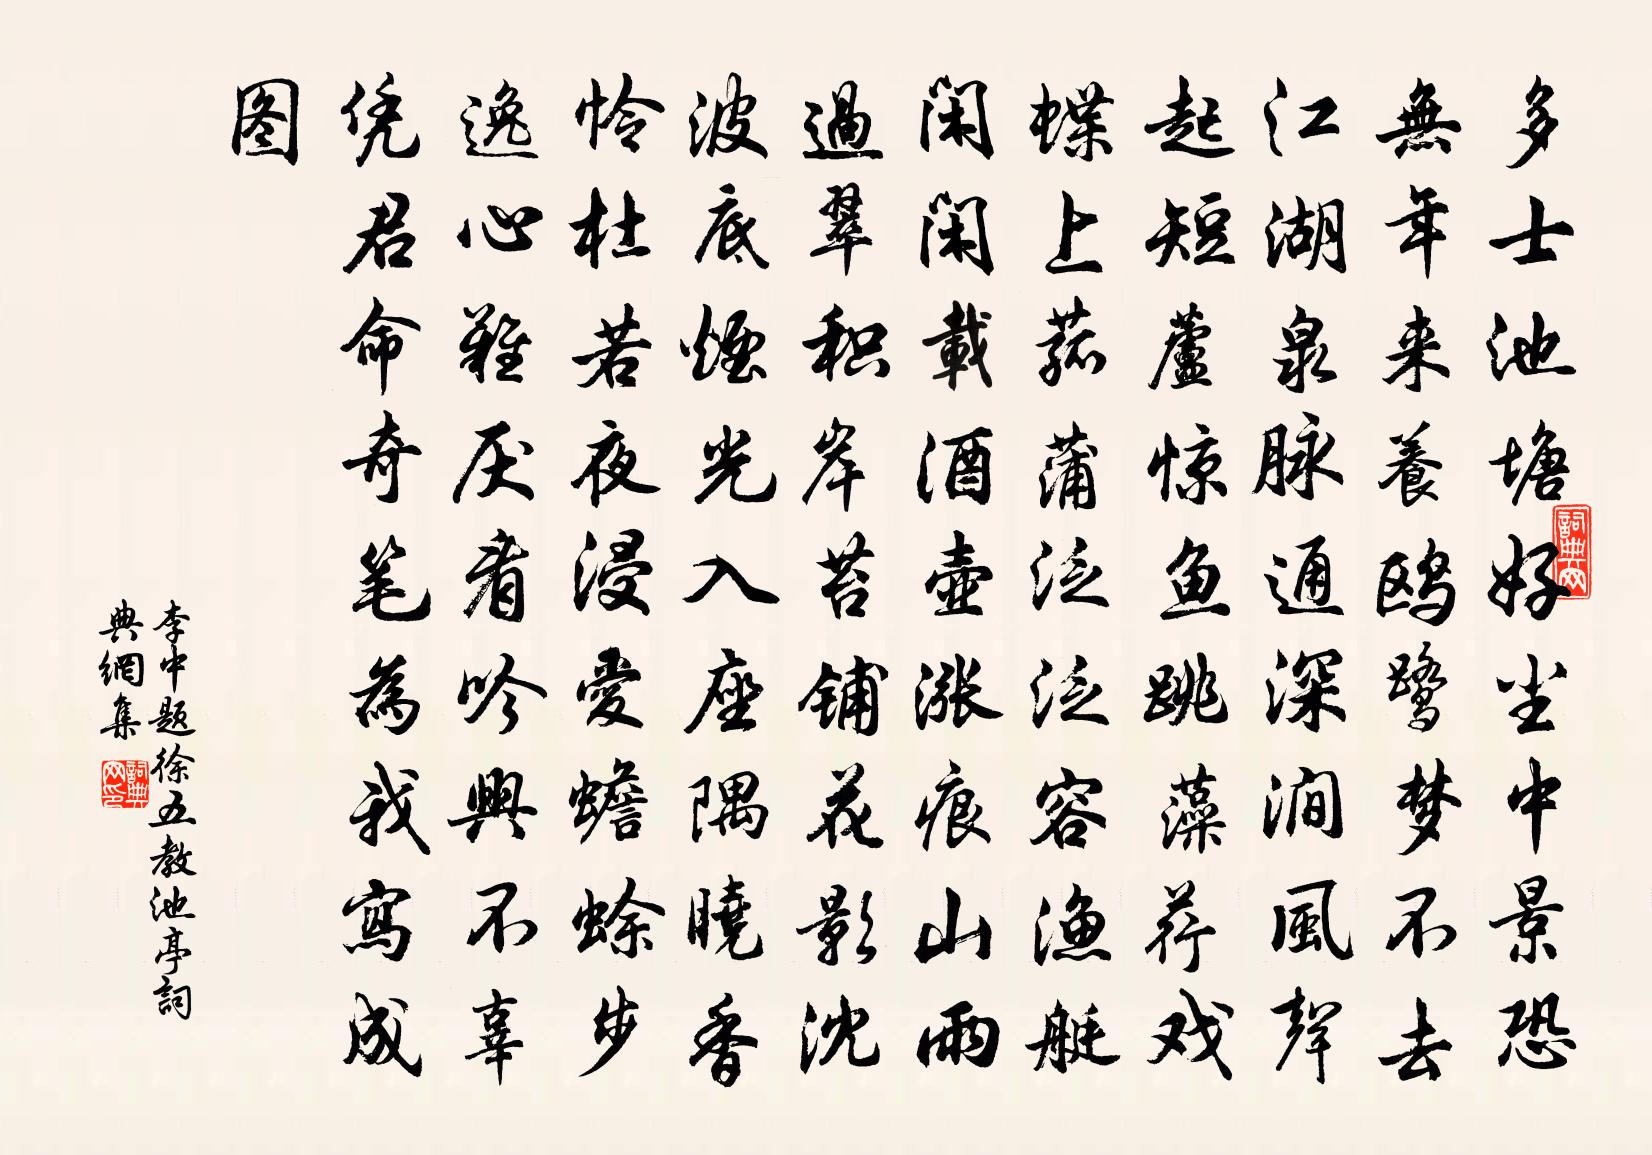 多士池塘好尘中景恐
無年来養鸥鹭梦不去
江湖泉脉通深涧風聲
起短蘆惊鱼跳藻荇戏
蝶上菰蒲泛泛容渔艇
闲闲載酒壶涨痕山雨
過翠积岸苔铺花影沈
波底煙光入座隅曉香
怜杜若夜浸愛蟾蜍步
逸心難厌看吟興不辜
凭君命奇笔為我寫成
图
李中题徐五教池亭詞
典網集
詞典网
詞典网印